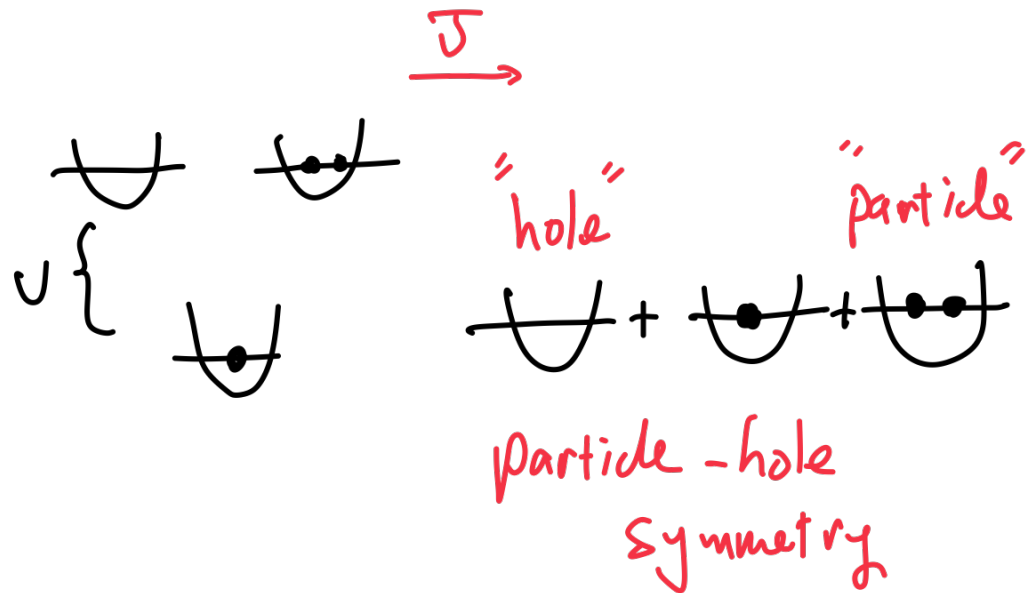 J
"hole" "particle"
U {
+ +
particle-hole
symmetry